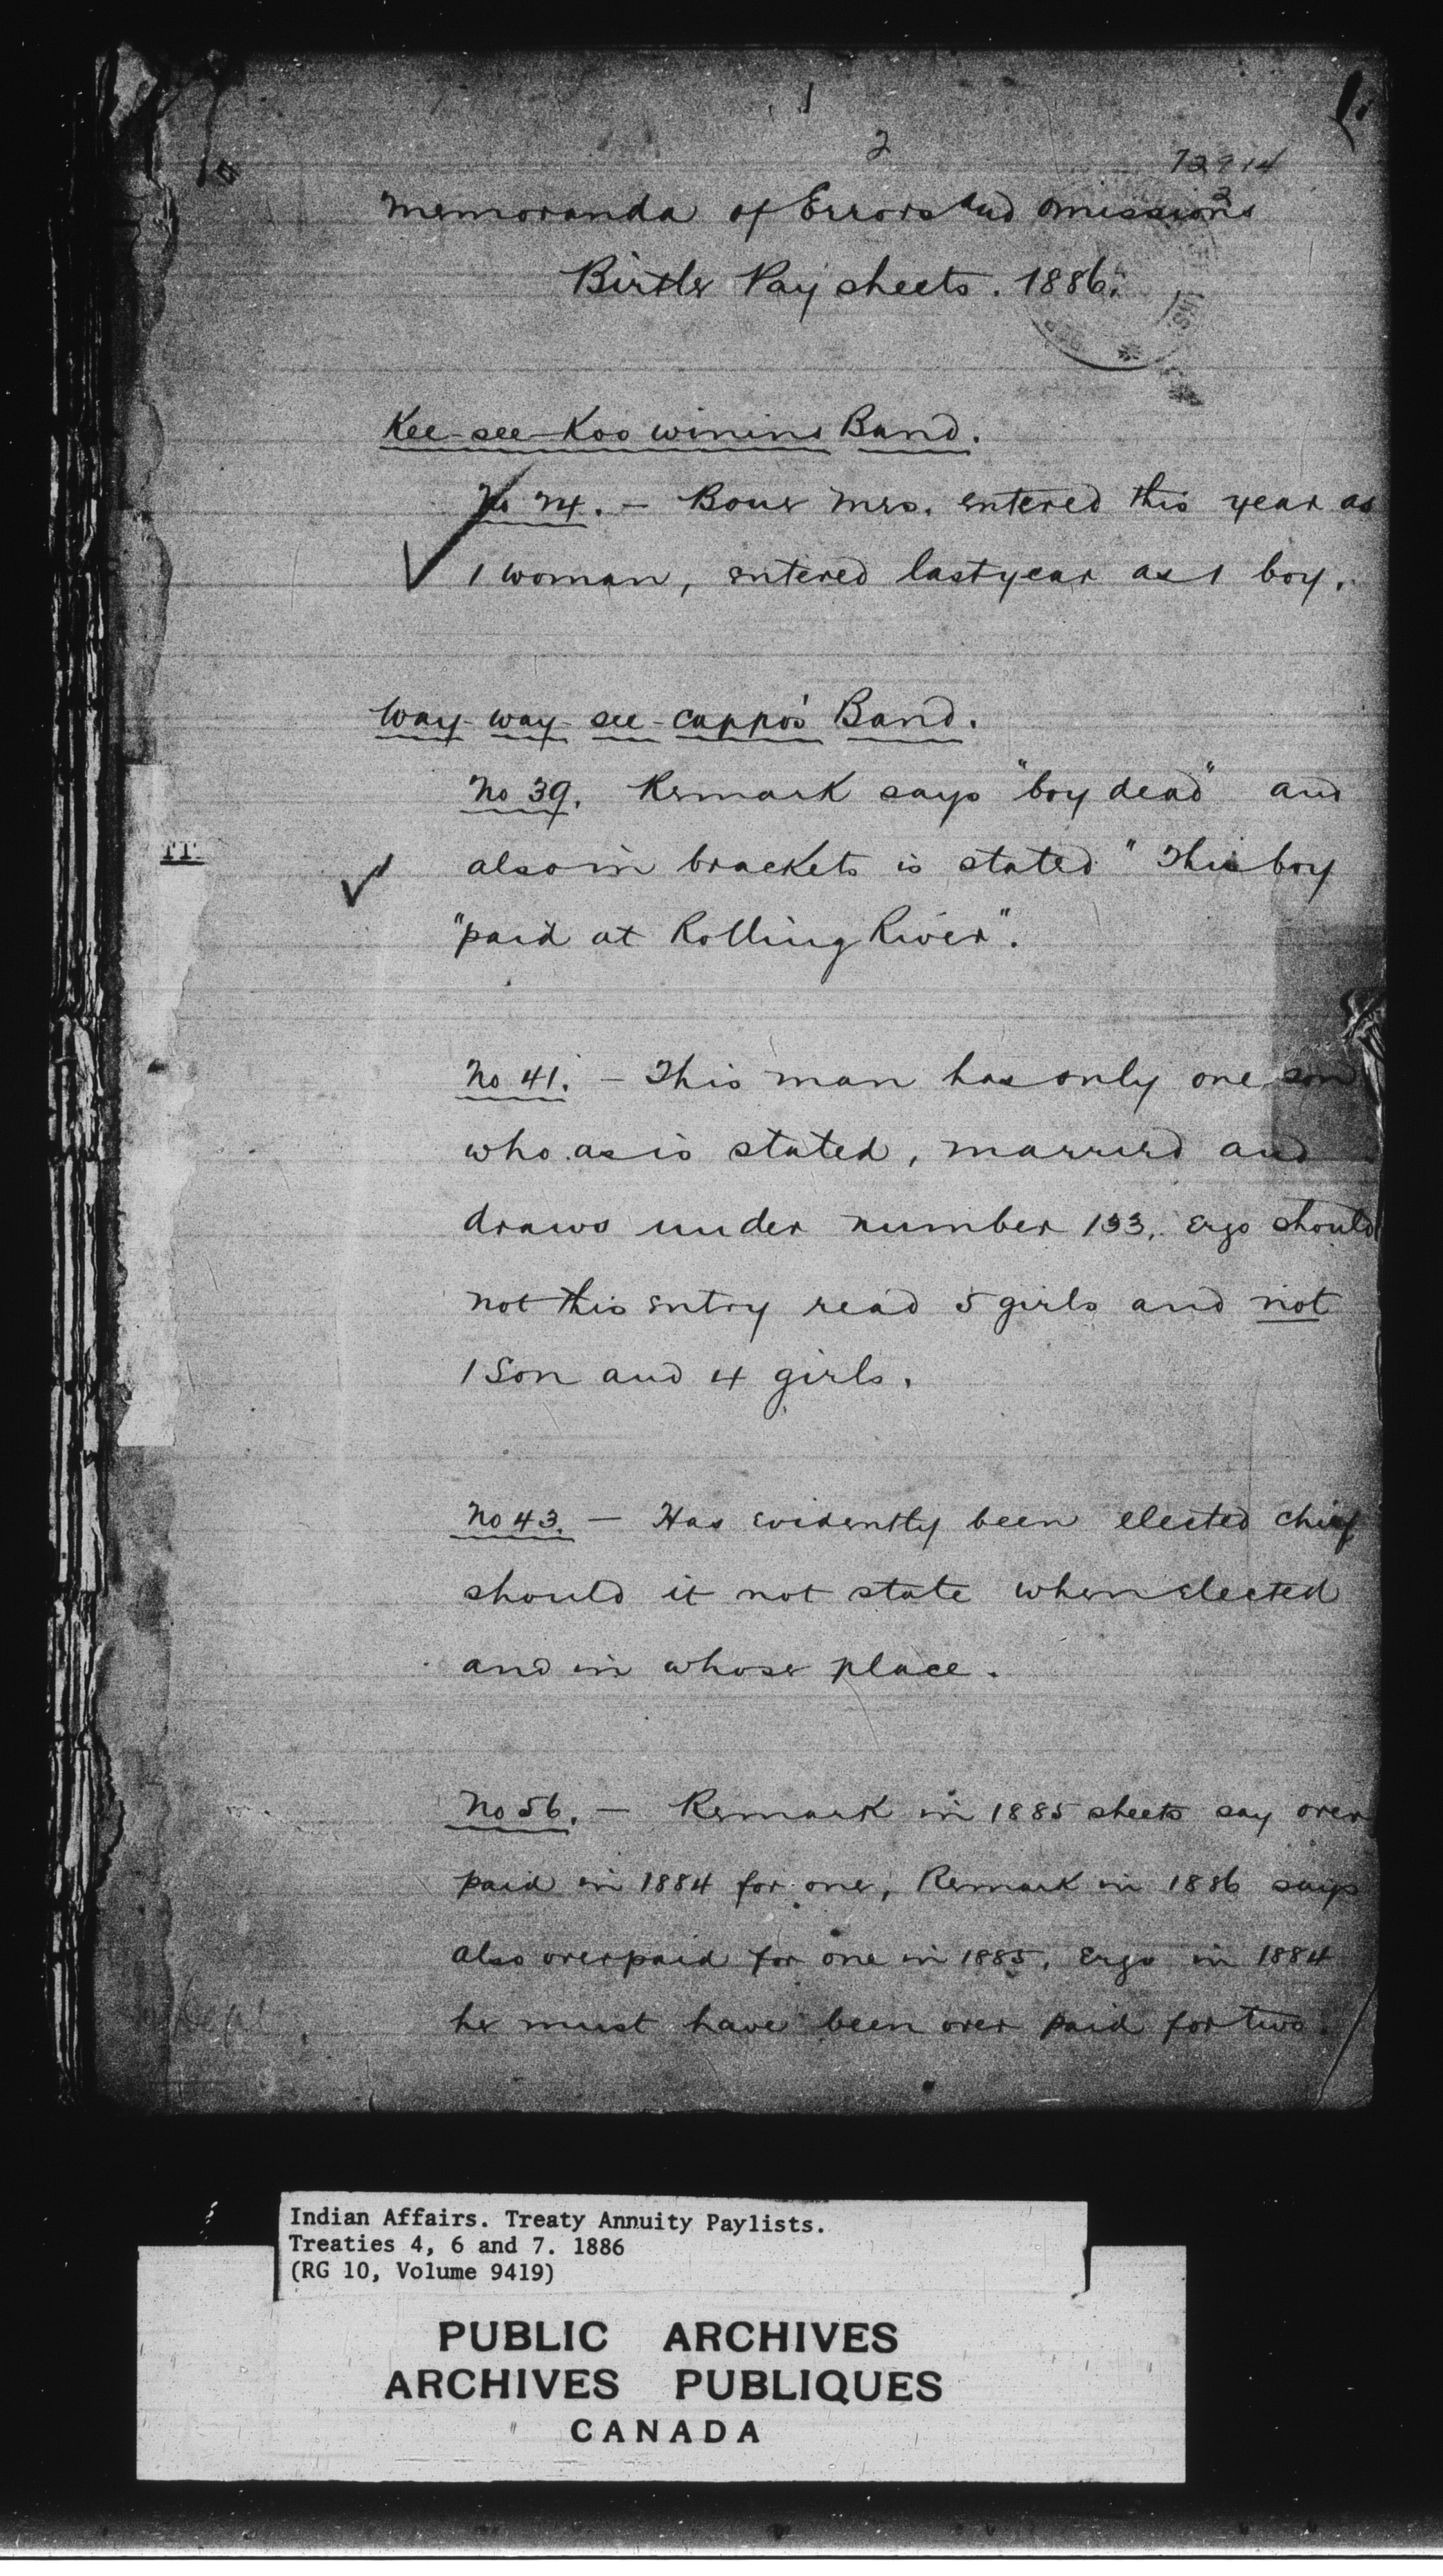 1
2
72914
2
Memoranda of Errors and omissions
Birtle Pay sheets. 1886.
Kee-see-Koo winins Band.
No 74. - Bone Mrs. entered this year as
1 woman, entered last year as 1 boy.
Way-way-see-cappo's Band.
No 39. Remark says "boy dead" and
also in brackets is stated "This boy
"paid at Rolling River".
No 41. - This man has only one son
who as is stated, married and
draws under number 133. Ergo should
not this entry read 5 girls and not
1 Son and 4 girls.
No 43. - Has evidently been elected chief
should it not state when elected
and in whose place.
No 56. - Remark in 1885 sheets say over
paid in 1884 for one, Remark in 1886 says
also overpaid for one in 1885. Ergo in 1884
he must have been over paid for two.
Indian Affairs. Treaty Annuity Paylists.
Treaties 4, 6 and 7. 1886
(RG 10, Volume 9419)
PUBLIC ARCHIVES
ARCHIVES PUBLIQUES
CANADA